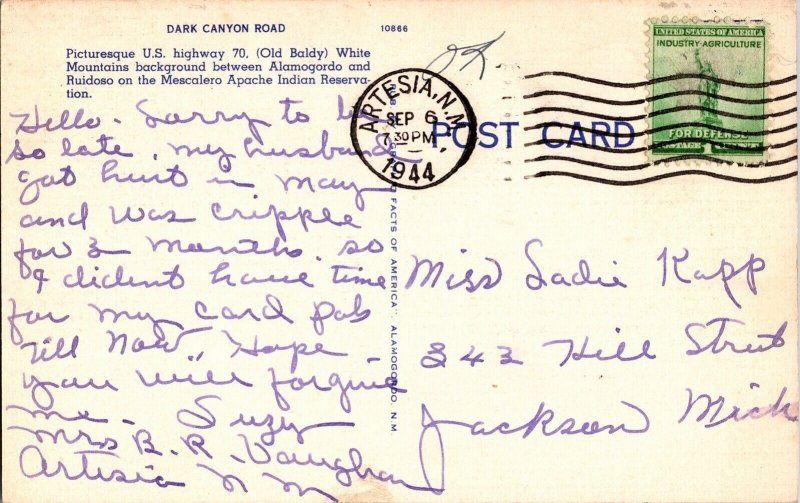 DARK CANYON ROAD
10866
Picturesque U.S. highway 70, (Old Baldy) White
Mountains background between Alamogordo and
Ruidoso on the Mescalero Apache Indian Reserva-
tion.
Hello. Sorry to be
so late, my husband
got hurt in May
and was cripple
for 3 months. so
I dident have time
for my card pals
till now, Hope
you will forgive
me. Suzy
Mrs B. R. Vaughan
Artesia N M
FACTS OF AMERICA" ALAMOGORDO, N. M.
ARTESIA, N.M.
SEP 6
7 30 PM
1944
POST CARD
UNITED STATES OF AMERICA
INDUSTRY-AGRICULTURE
FOR DEFENSE
POSTAGE 1 CENT
Miss Sadie Kapp
342 Hill Street
Jackson Mich